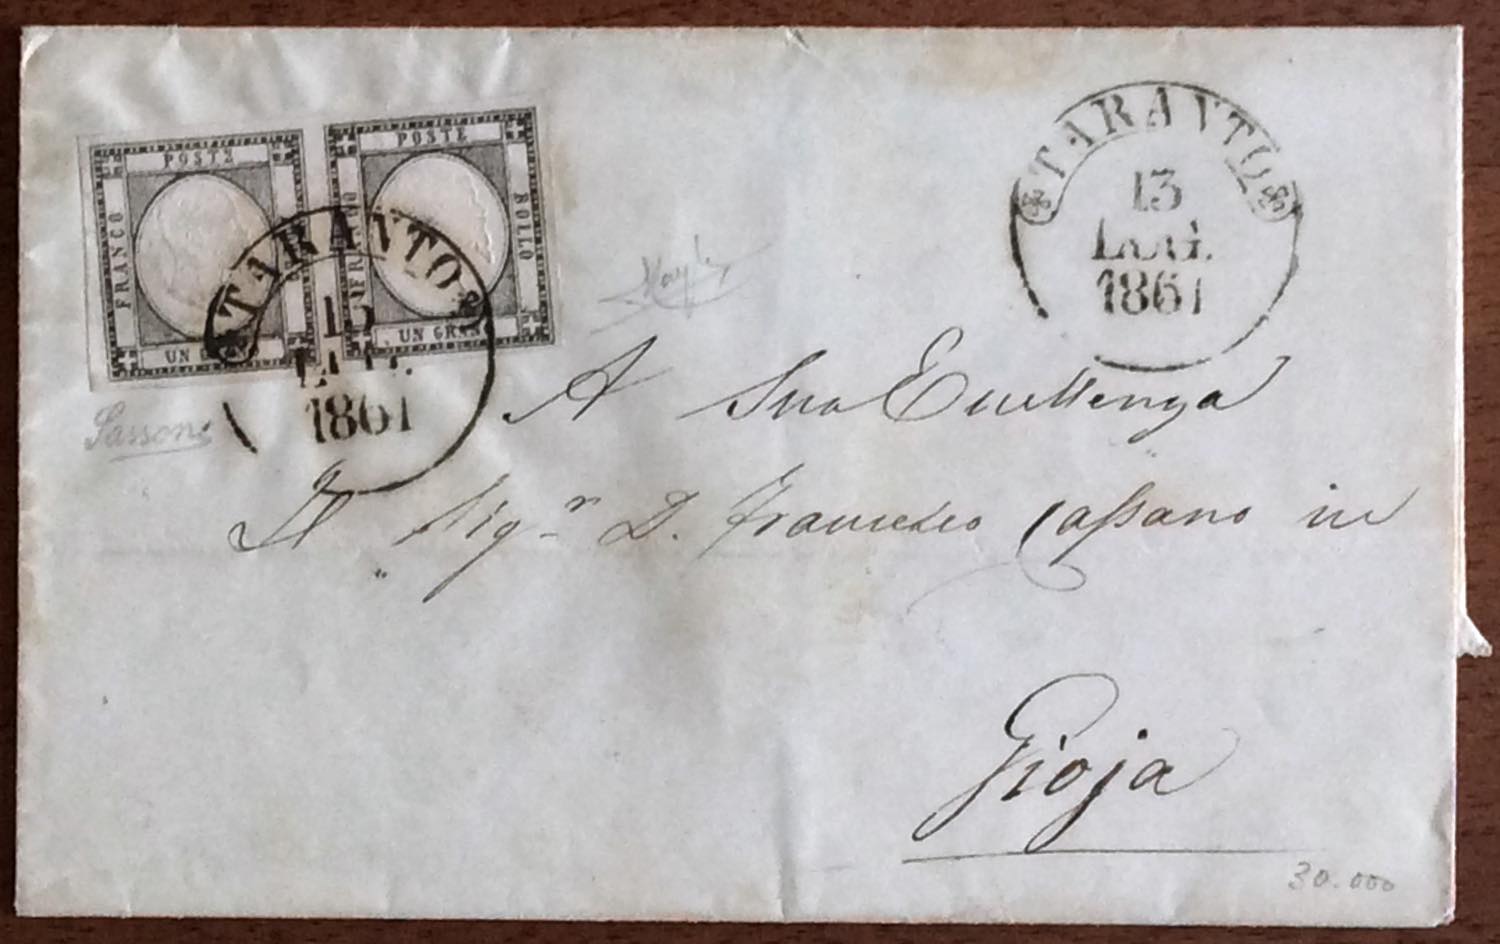 POSTE
FRANCO
UN GRANO
POSTE
FRANCO
BOLLO
UN GRANO
TARANTO
13
LUG.
1861
TARANTO
13
LUG.
1861
Sassone
A Sua Eccellenza
Il Sigr. D. Francesco Cassano in
Gioja
30.000